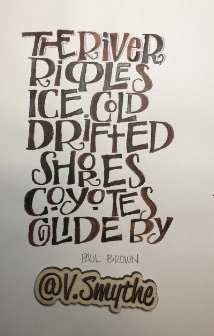 THE RIVER
RIPPLES
ICE COLD
DRIFTED
SHORES
COYOTES
GLIDE BY
PAUL BROWN
@V.Smythe